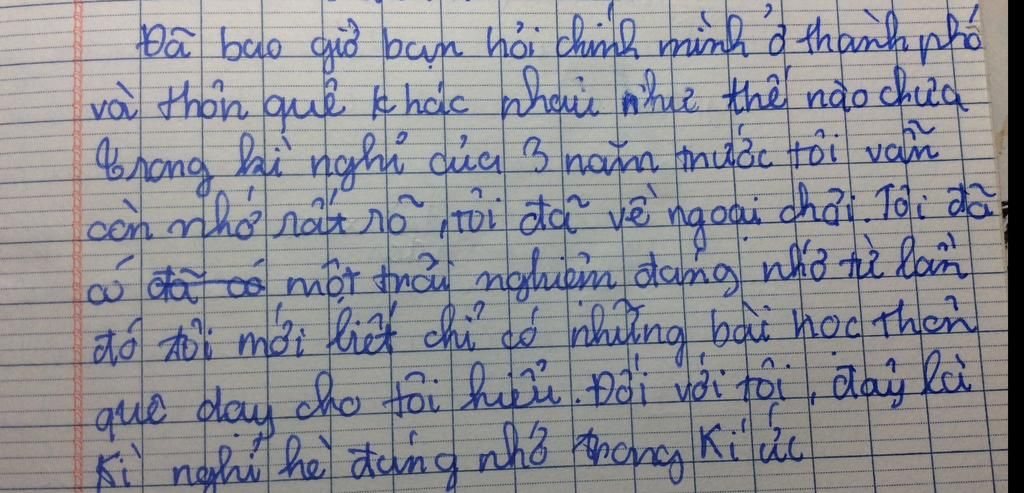 Đã bao giờ bạn hỏi chính mình ở thành phố
và thôn quê khác nhau như thế nào chưa
trong kì nghỉ của 3 năm trước tôi vẫn
còn nhớ rất rõ, tôi đã về ngoại chơi. Tôi đã
có đã có một trải nghiệm đáng nhớ từ lần
đó tôi mới biết chỉ có những bài học thôn
quê dạy cho tôi hiểu. Đối với tôi, đây là
kì nghỉ hè đáng nhớ trong kí ức